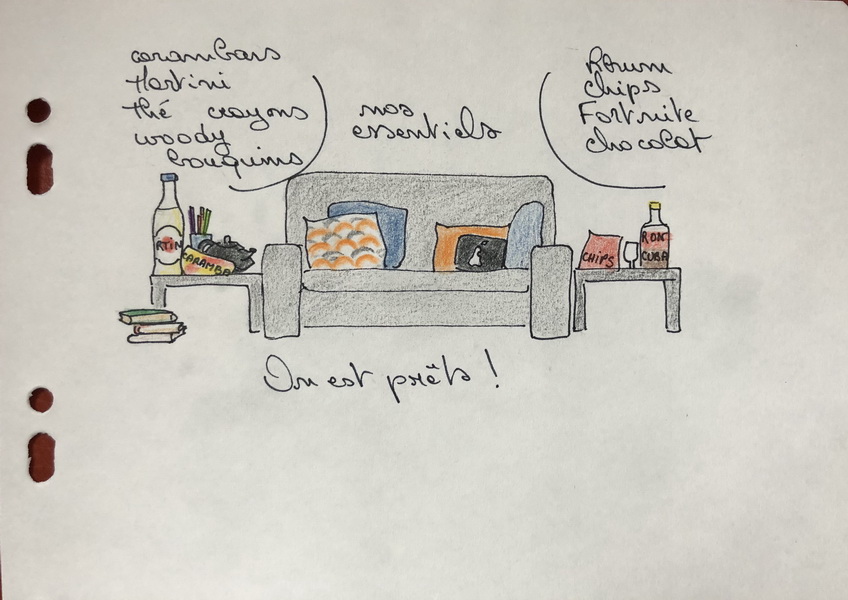 carambars
Martini
thé crayons
woody
bouquins
nos
essentiels
Rhum
chips
Fortnite
chocolat
RTIN
CARAMBA
CHIPS
RON
CUBA
On est prêts !